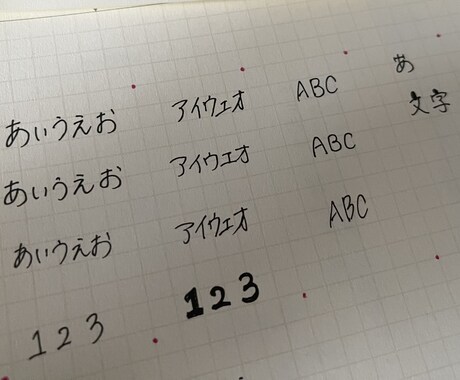 あいうえお アイウェオ ABC あ
あいうえお アイウェオ ABC 文字
あいうえお アイウェオ ABC
1 2 3 1 2 3